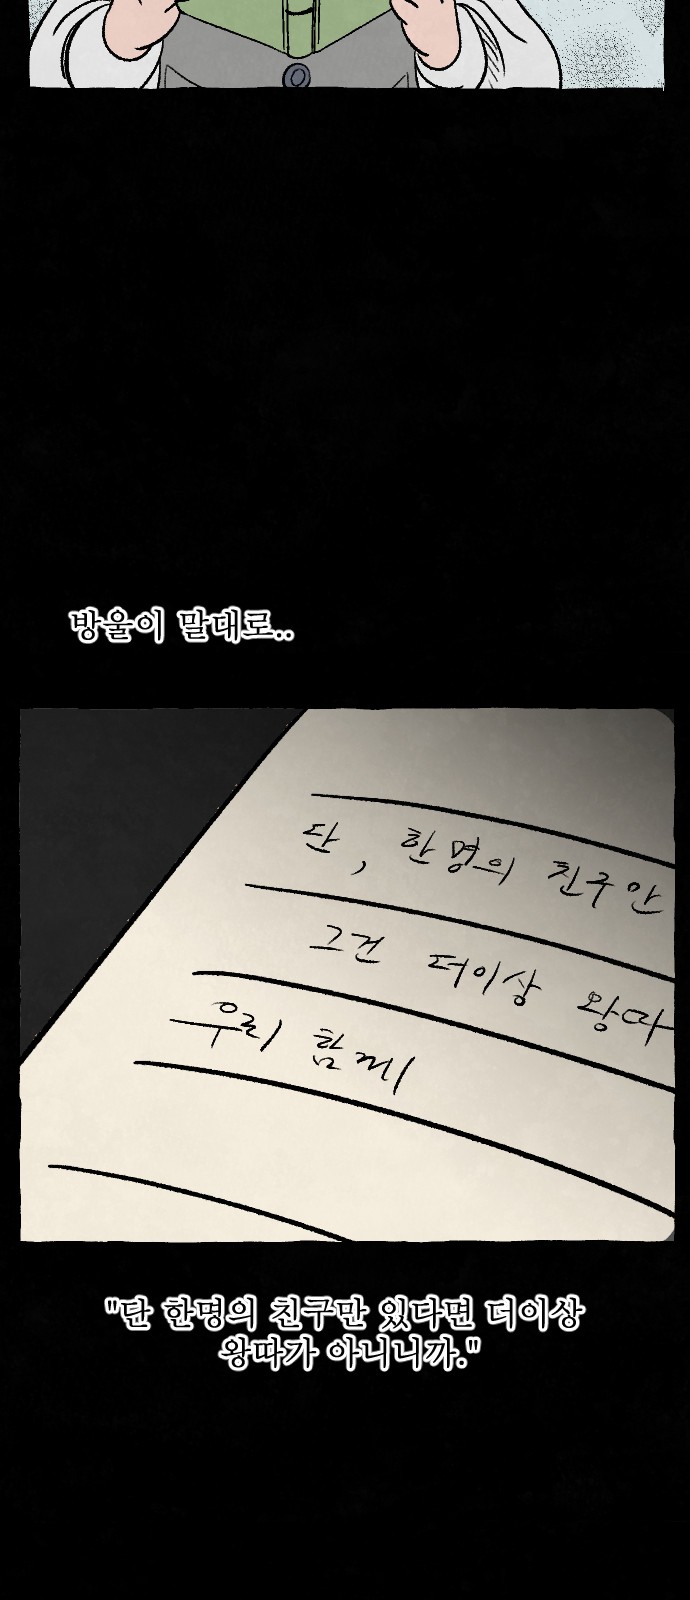 방울이 말대로..
단, 한명의 친구만
그건 더이상 왕따
우리 함께
"단 한명의 친구만 있다면 더이상
왕따가 아니니까."